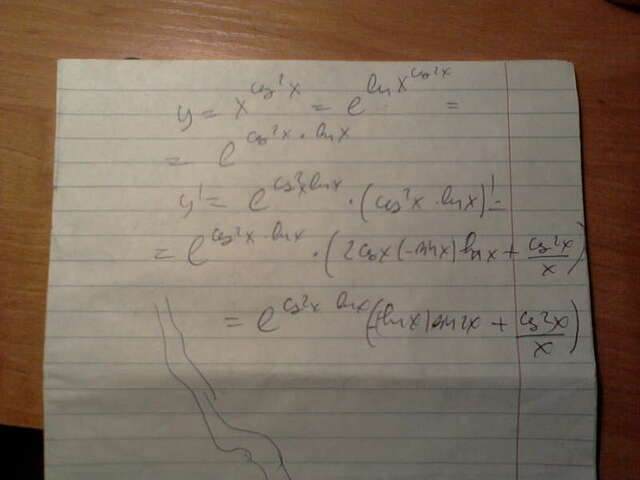 y = x^{cos²x} = e^{ln x^{cos²x}} =
= e^{cos²x · ln x}
y' = e^{cos²x ln x} · (cos²x · ln x)' =
= e^{cos²x · ln x} · (2cos x (-sin x) ln x + \frac{cos²x}{x})
= e^{cos²x ln x} (-ln x) sin 2x + \frac{cos²x}{x})